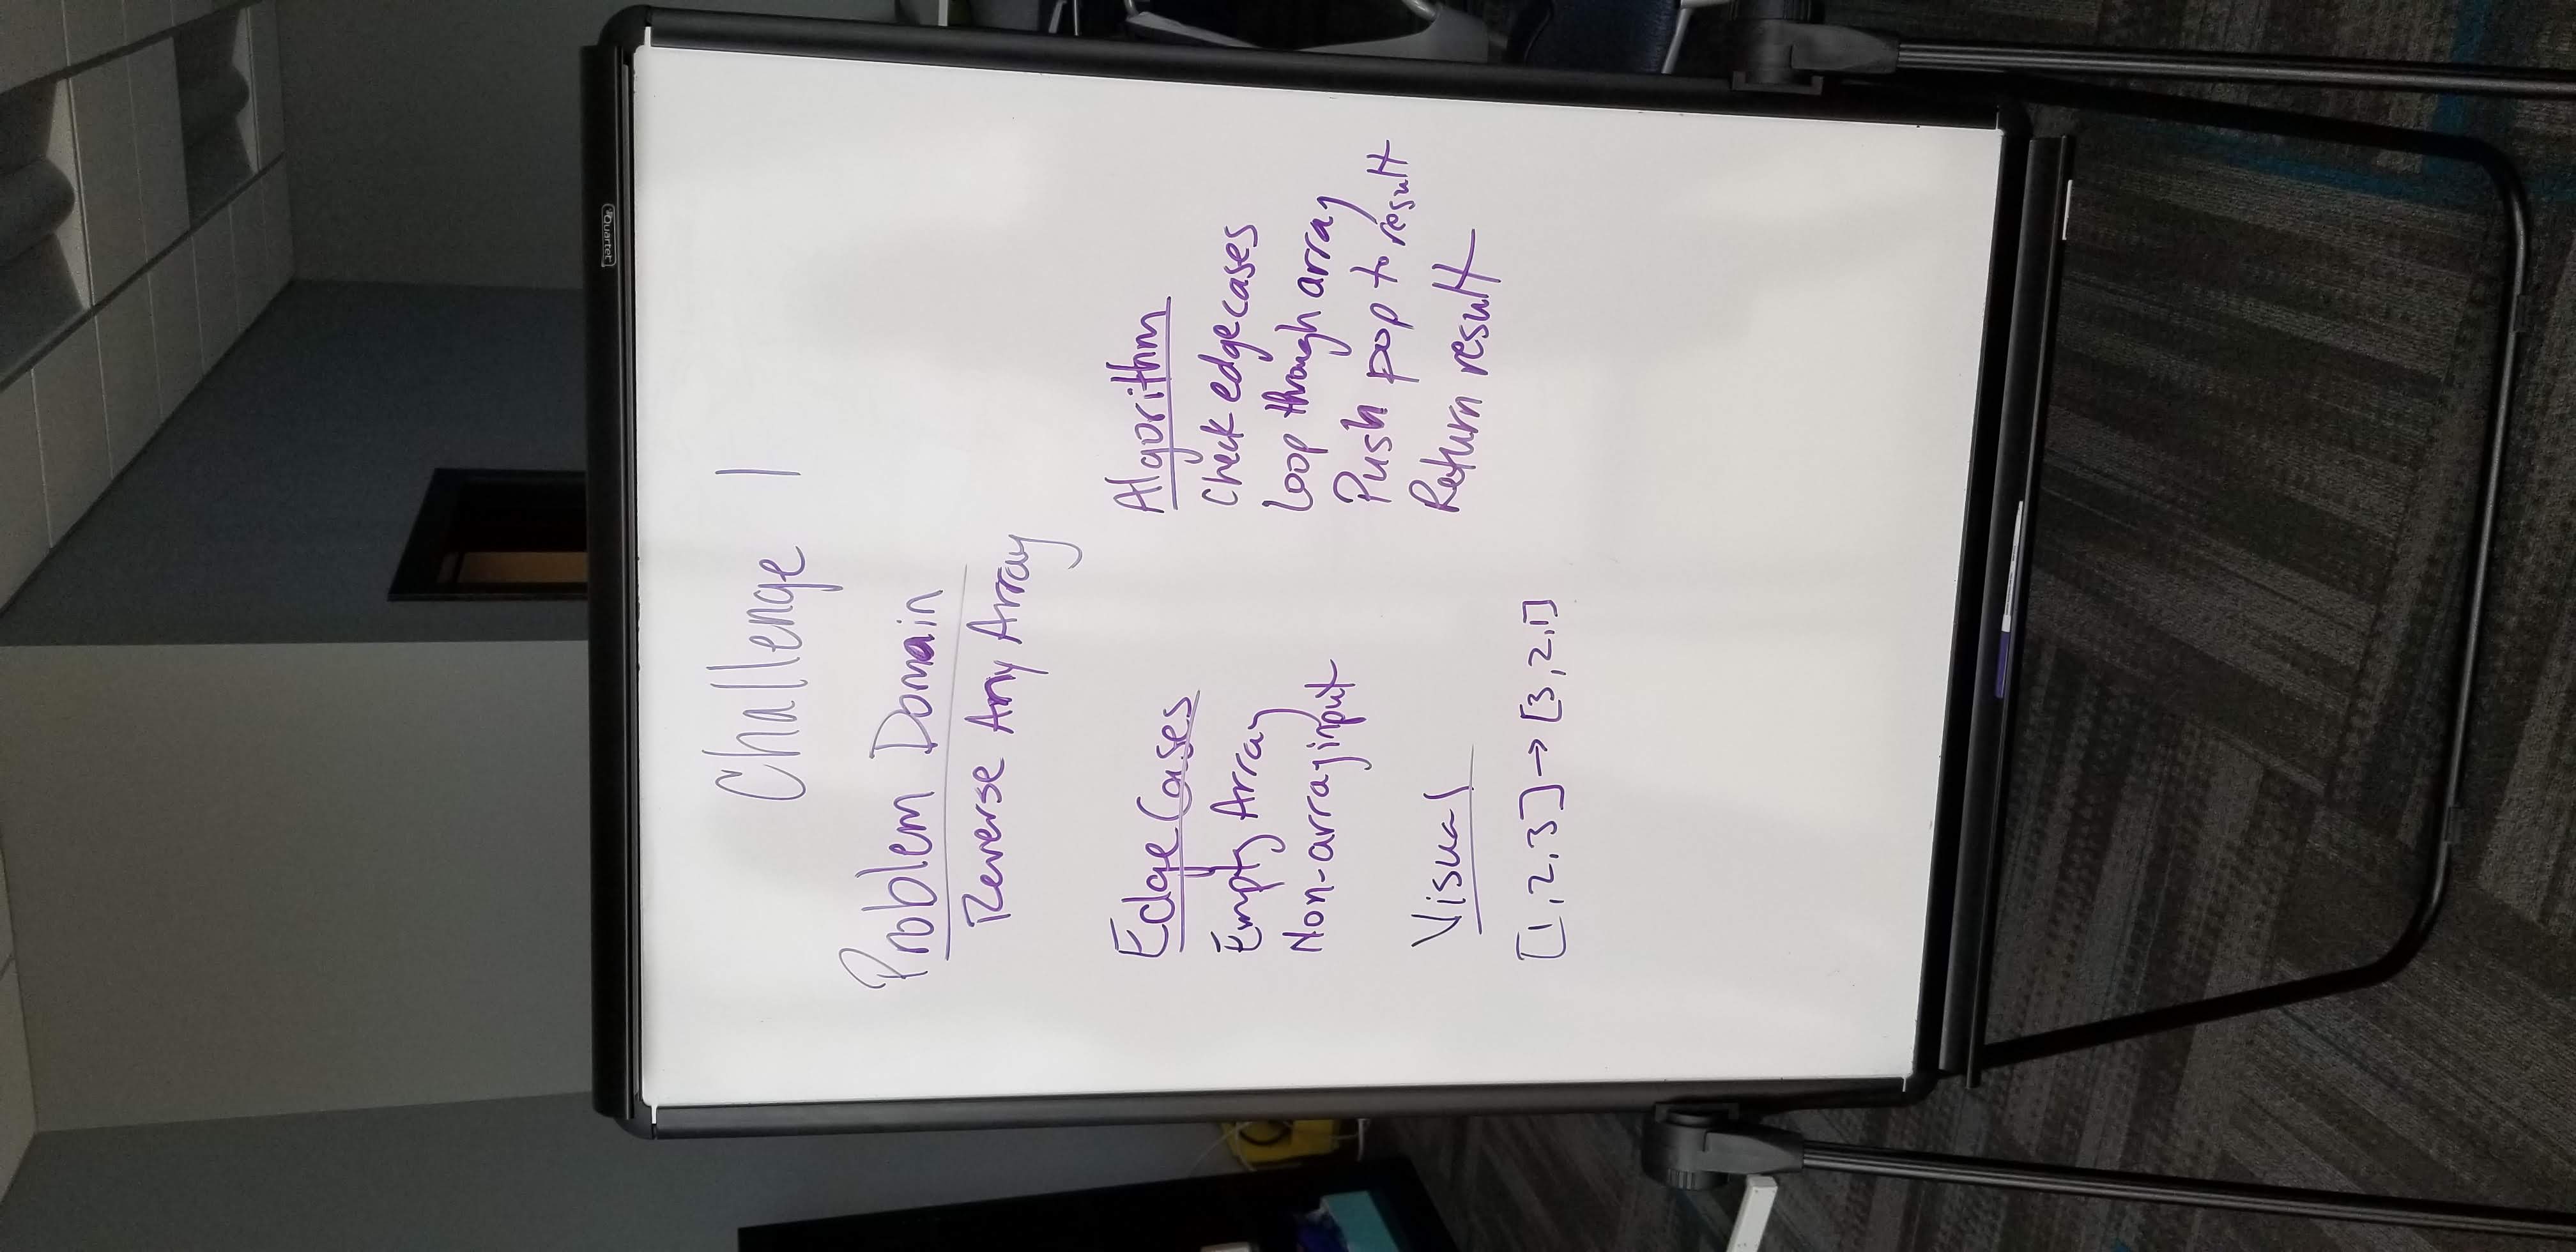 Quartet
Challenge 1
Problem Domain
Reverse Any Array
Edge Cases
Empty Array
Non-array input
Visual
[1,2,3] → [3,2,1]
Algorithm
Check edge cases
Loop through array
Push pop to result
Return result